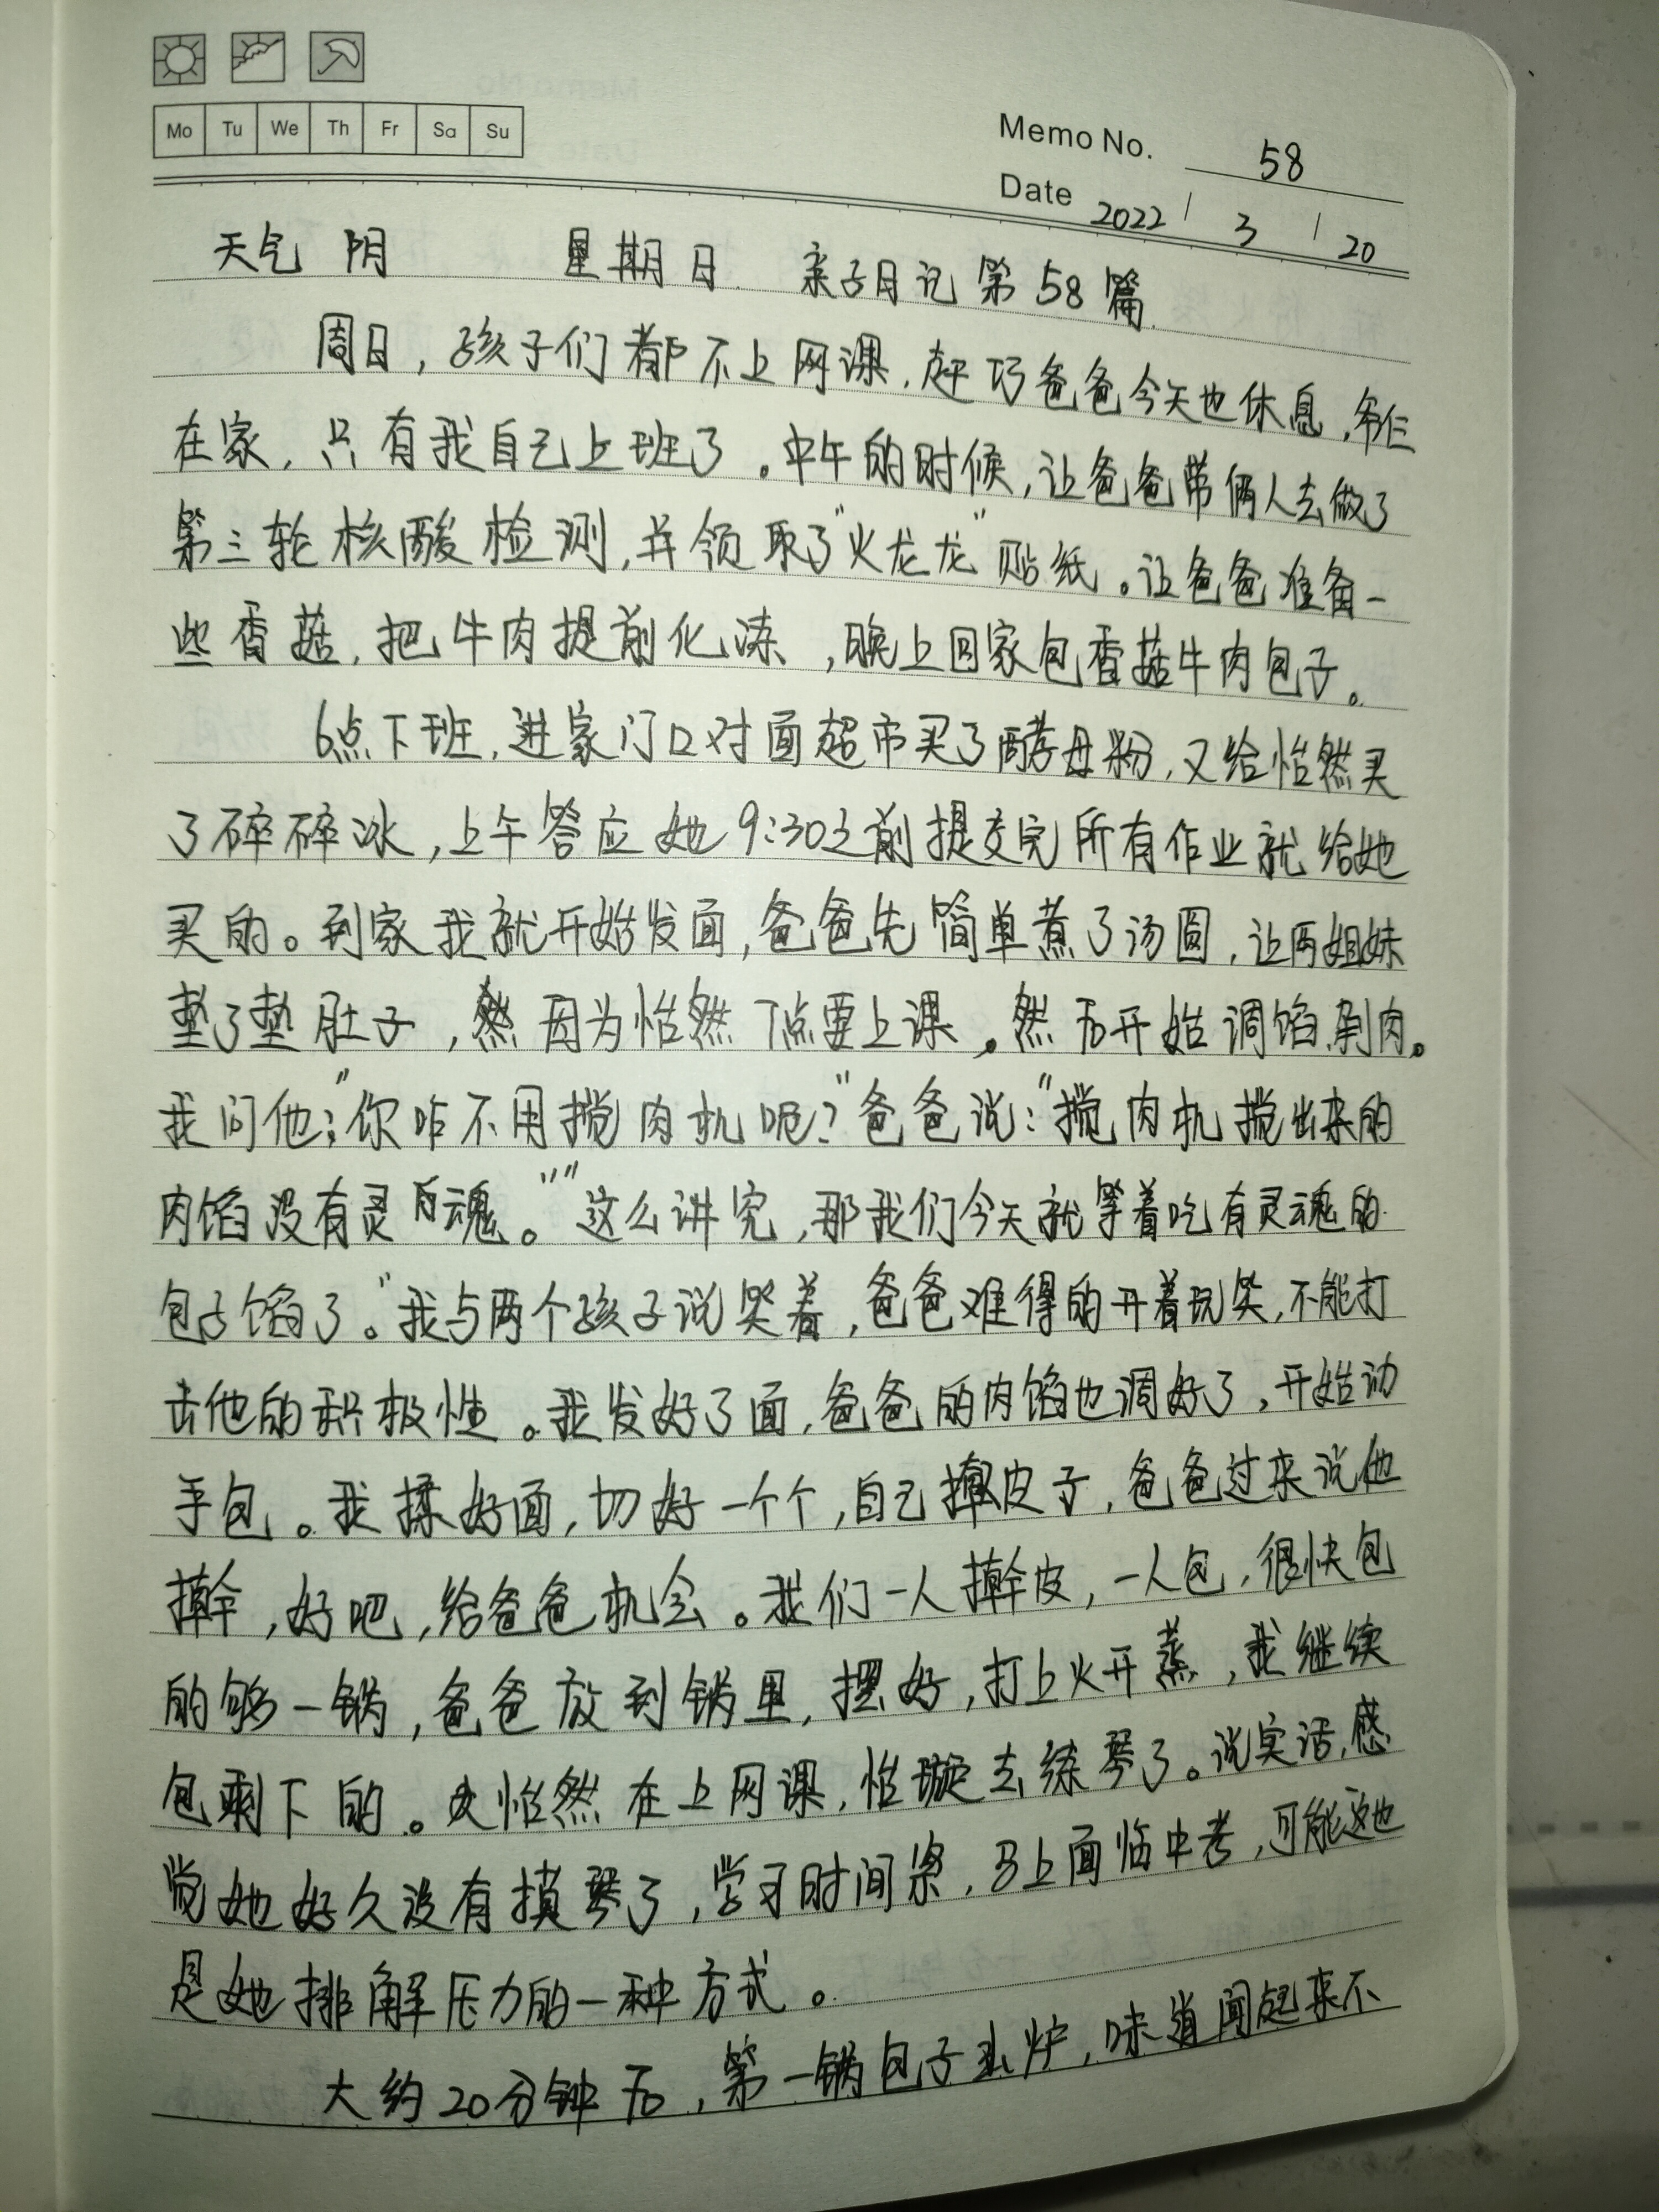 Mo Tu We Th Fr Sa Su
Memo No. 58
Date 2022 / 3 / 20
天气 阴 星期日 亲子日记第58篇
周日，孩子们都不上网课，赶巧爸爸今天也休息，爷仨
在家，只有我自己上班了。中午的时候，让爸爸带俩人去做了
第三轮核酸检测，并领取了“火龙龙”贴纸。让爸爸准备一
些香菇，把牛肉提前化冻，晚上回家包香菇牛肉包子。
6点下班，进家门口对面超市买了酵母粉，又给怡然买
了碎碎冰，上午答应她9:30之前提交完所有作业就给她
买的。到家我就开始发面，爸爸先简单煮了汤圆，让两姐妹
垫了垫肚子，因为怡然7点要上课。然后开始调馅剁肉。
我问他：“你咋不用搅肉机呢？”爸爸说：“搅肉机搅出来的
肉馅没有灵魂。”“这么讲究，那我们今天就等着吃有灵魂的
包子馅了。”我与两个孩子说笑着，爸爸难得的开着玩笑，不能打
击他的积极性。我发好了面，爸爸的肉馅也调好了，开始动
手包。我揉好面，切好一个个，自己擀皮子，爸爸过来说他
擀，好吧，给爸爸机会。我们一人擀皮，一人包，很快包
的够一锅，爸爸放到锅里，摆好，打上火开蒸，我继续
包剩下的。怡然在上网课，怡璇去练琴了。说实话，感
觉她好久没有摸琴了，学习时间紧，马上面临中考，可能这也
是她排解压力的一种方式。
大约20分钟后，第一锅包子出炉，味道闻起来不